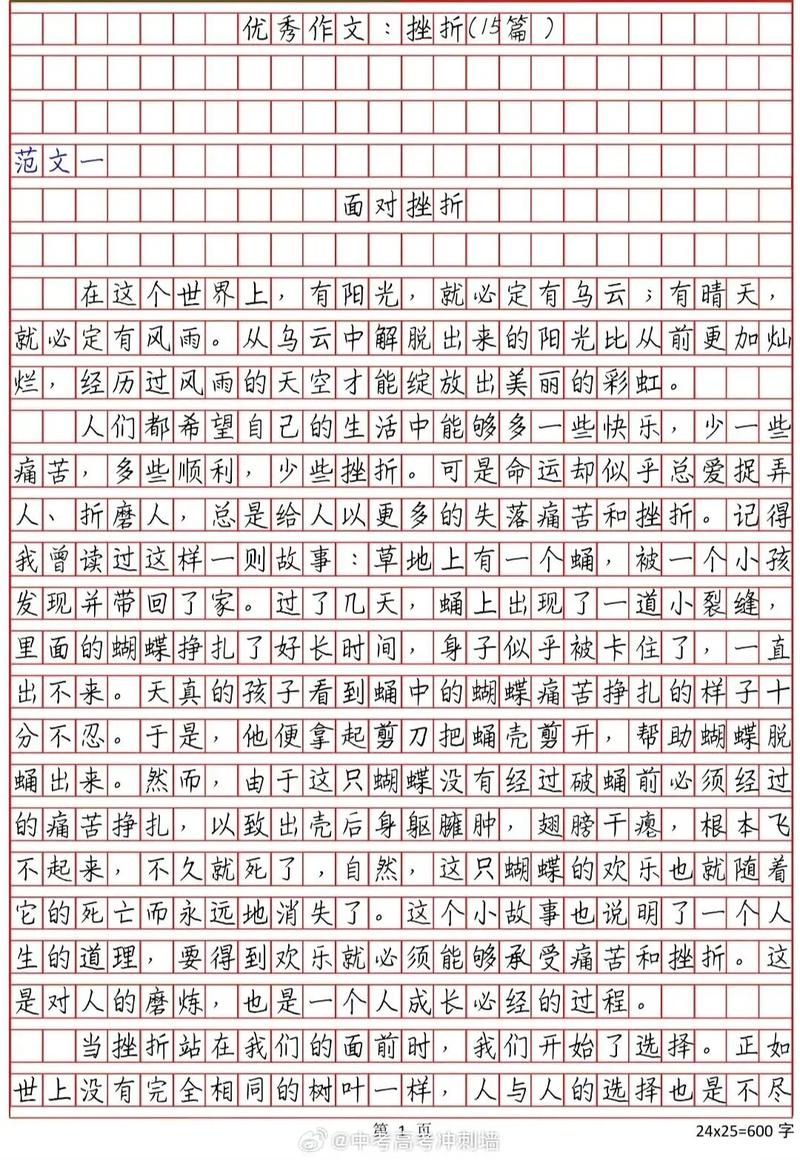 优秀作文：挫折(15篇)
范文一
面对挫折
在这个世界上，有阳光，就必定有乌云；有晴天，
就必定有风雨。从乌云中解脱出来的阳光比从前更加灿
烂，经历过风雨的天空才能绽放出美丽的彩虹。
人们都希望自己的生活中能够多一些快乐，少一些
痛苦，多些顺利，少些挫折。可是命运却似乎总爱捉弄
人、折磨人，总是给人以更多的失落痛苦和挫折。记得
我曾读过这样一则故事：草地上有一个蛹，被一个小孩
发现并带回了家。过了几天，蛹上出现了一道小裂缝，
里面的蝴蝶挣扎了好长时间，身子似乎被卡住了，一直
出不来。天真的孩子看到蛹中的蝴蝶痛苦挣扎的样子十
分不忍。于是，他便拿起剪刀把蛹壳剪开，帮助蝴蝶脱
蛹出来。然而，由于这只蝴蝶没有经过破蛹前必须经过
的痛苦挣扎，以致出壳后身躯臃肿，翅膀干瘪，根本飞
不起来，不久就死了，自然，这只蝴蝶的欢乐也就随着
它的死亡而永远地消失了。这个小故事也说明了一个人
生的道理，要得到欢乐就必须能够承受痛苦和挫折。这
是对人的磨炼，也是一个人成长必经的过程。
当挫折站在我们的面前时，我们开始了选择。正如
世上没有完全相同的树叶一样，人与人的选择也是不尽
第 1 页
24x25=600 字
@中考高考冲刺墙